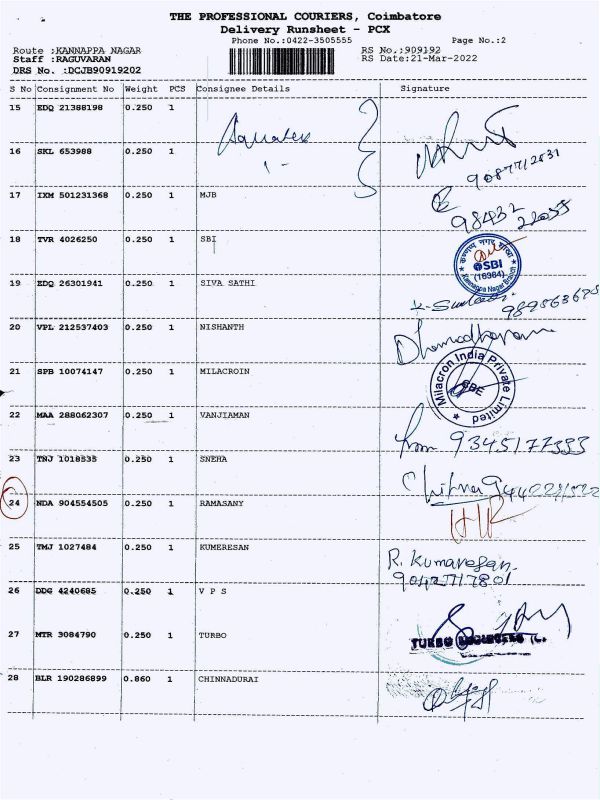 THE PROFESSIONAL COURIERS, Coimbatore
Delivery Runsheet - PCX
Phone No.:0422-3505555 Page No.:2
Route :KANNAPPA NAGAR RS No.:909192
Staff :RAGUVARAN RS Date:21-Mar-2022
DRS No. :DCJB90919202
S No Consignment No Weight PCS Consignee Details Signature
15 EDQ 21388198 0.250 1
16 SKL 653988 0.250 1
9087712831
17 IXM 501231368 0.250 1 MJB
98432
22055
18 TVR 4026250 0.250 1 SBI
SBI
(16364)
Kannappa Nagar Branch
19 EDQ 26301941 0.250 1 SIVA SATHI
20 VPL 212537403 0.250 1 NISHANTH
21 SPB 10074147 0.250 1 MILACROIN
Milacron India Private Limited
CBE
22 MAA 288062307 0.250 1 VANJIAMAN
9345177333
23 TNJ 1018535 0.250 1 SNEHA
24 NDA 904554505 0.250 1 RAMASANY
25 TMJ 1027484 0.250 1 KUMERESAN
R. Kumaresan.
26 DDG 4240685 0.250 1 V P S
27 MTR 3084790 0.250 1 TURBO
TURBO
28 BLR 190286899 0.860 1 CHINNADURAI